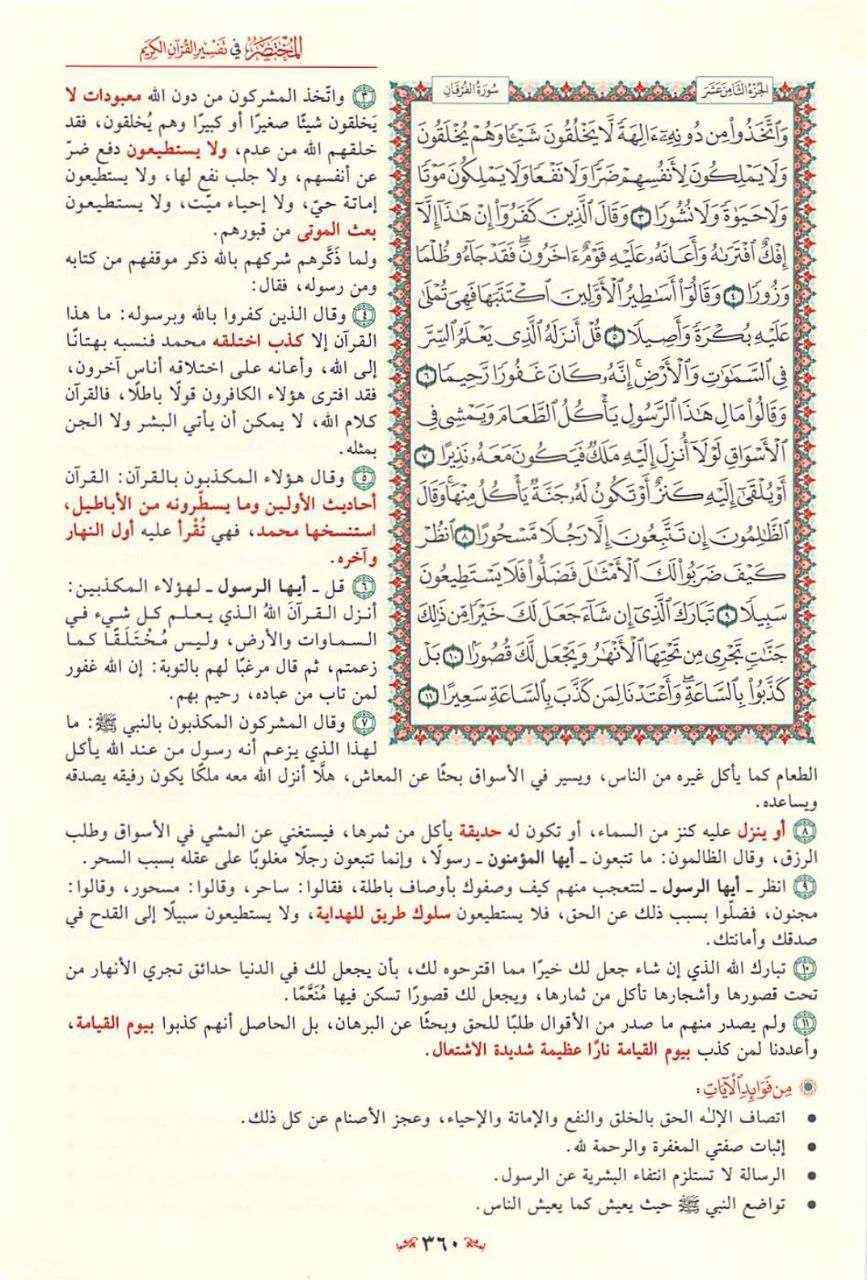 المُخْتَصَرُ في تَفْسِيرِ القُرْآنِ الكَرِيمِ
الجُزْءُ الثَّامِنَ عَشَرَ
سُورَةُ الفُرْقَانِ
وَٱتَّخَذُواْ مِن دُونِهِۦٓ ءَالِهَةٗ لَّا يَخۡلُقُونَ شَيۡـٔٗا وَهُمۡ يُخۡلَقُونَ
وَلَا يَمۡلِكُونَ لِأَنفُسِهِمۡ ضَرّٗا وَلَا نَفۡعٗا وَلَا يَمۡلِكُونَ مَوۡتٗا
وَلَا حَيَوٰةٗ وَلَا نُشُورٗا ٣ وَقَالَ ٱلَّذِينَ كَفَرُوٓاْ إِنۡ هَٰذَآ إِلَّآ
إِفۡكٌ ٱفۡتَرَىٰهُ وَأَعَانَهُۥ عَلَيۡهِ قَوۡمٌ ءَاخَرُونَۖ فَقَدۡ جَآءُو ظُلۡمٗا
وَزُورٗا ٤ وَقَالُوٓاْ أَسَٰطِيرُ ٱلۡأَوَّلِينَ ٱكۡتَتَبَهَا فَهِيَ تُمۡلَىٰ
عَلَيۡهِ بُكۡرَةٗ وَأَصِيلٗا ٥ قُلۡ أَنزَلَهُ ٱلَّذِي يَعۡلَمُ ٱلسِّرَّ
فِي ٱلسَّمَٰوَٰتِ وَٱلۡأَرۡضِۚ إِنَّهُۥ كَانَ غَفُورٗا رَّحِيمٗا ٦
وَقَالُواْ مَالِ هَٰذَا ٱلرَّسُولِ يَأۡكُلُ ٱلطَّعَامَ وَيَمۡشِي فِي
ٱلۡأَسۡوَاقِ لَوۡلَآ أُنزِلَ إِلَيۡهِ مَلَكٞ فَيَكُونَ مَعَهُۥ نَذِيرًا ٧
أَوۡ يُلۡقَىٰٓ إِلَيۡهِ كَنزٌ أَوۡ تَكُونُ لَهُۥ جَنَّةٞ يَأۡكُلُ مِنۡهَاۚ وَقَالَ
ٱلظَّٰلِمُونَ إِن تَتَّبِعُونَ إِلَّا رَجُلٗا مَّسۡحُورًا ٨ ٱنظُرۡ
كَيۡفَ ضَرَبُواْ لَكَ ٱلۡأَمۡثَٰلَ فَضَلُّواْ فَلَا يَسۡتَطِيعُونَ
سَبِيلٗا ٩ تَبَارَكَ ٱلَّذِيٓ إِن شَآءَ جَعَلَ لَكَ خَيۡرٗا مِّن ذَٰلِكَ
جَنَّٰتٖ تَجۡرِي مِن تَحۡتِهَا ٱلۡأَنۡهَٰرُ وَيَجۡعَل لَّكَ قُصُورَۢا ١٠ بَلۡ
كَذَّبُواْ بِٱلسَّاعَةِۖ وَأَعۡتَدۡنَا لِمَن كَذَّبَ بِٱلسَّاعَةِ سَعِيرًا ١١
٣ واتّخذ المشركون من دون الله معبودات لا
يَخلقون شيئًا صغيرًا أو كبيرًا وهم يُخلقون، فقد
خلقهم الله من عدم، ولا يستطيعون دفع ضرّ
عن أنفسهم، ولا جلب نفع لها، ولا يستطيعون
إماتة حيّ، ولا إحياء ميّت، ولا يستطيعون
بعث الموتى من قبورهم.
ولما ذَكَّرهم شركهم بالله ذكر موقفهم من كتابه
ومن رسوله، فقال:
٤ وقال الذين كفروا بالله وبرسوله: ما هذا
القرآن إلا كذب اختلقه محمد فنسبه بهتانًا
إلى الله، وأعانه على اختلاقه أناس آخرون،
فقد افترى هؤلاء الكافرون قولًا باطلًا، فالقرآن
كلام الله، لا يمكن أن يأتي البشر ولا الجن
بمثله.
٥ وقال هؤلاء المكذبون بالقرآن: القرآن
أحاديث الأولين وما يسطّرونه من الأباطيل،
استنسخها محمد، فهي تُقْرأ عليه أول النهار
وآخره.
٦ قل ـ أيها الرسول ـ لهؤلاء المكذبين:
أنزل القرآنَ اللهُ الذي يعلم كل شيء في
السماوات والأرض، وليس مُخْتَلَقًا كما
زعمتم، ثم قال مرغبًا لهم بالتوبة: إن الله غفور
لمن تاب من عباده، رحيم بهم.
٧ وقال المشركون المكذبون بالنبي ﷺ: ما
لهذا الذي يزعم أنه رسول من عند الله يأكل
الطعام كما يأكل غيره من الناس، ويسير في الأسواق بحثًا عن المعاش، هلَّا أنزل الله معه ملكًا يكون رفيقه يصدقه
ويساعده.
٨ أو ينزل عليه كنز من السماء، أو تكون له حديقة يأكل من ثمرها، فيستغني عن المشي في الأسواق وطلب
الرزق، وقال الظالمون: ما تتبعون ـ أيها المؤمنون ـ رسولًا، وإنما تتبعون رجلًا مغلوبًا على عقله بسبب السحر.
٩ انظر ـ أيها الرسول ـ لتتعجب منهم كيف وصفوك بأوصاف باطلة، فقالوا: ساحر، وقالوا: مسحور، وقالوا:
مجنون، فضلّوا بسبب ذلك عن الحق، فلا يستطيعون سلوك طريق للهداية، ولا يستطيعون سبيلًا إلى القدح في
صدقك وأمانتك.
١٠ تبارك الله الذي إن شاء جعل لك خيرًا مما اقترحوه لك، بأن يجعل لك في الدنيا حدائق تجري الأنهار من
تحت قصورها وأشجارها تأكل من ثمارها، ويجعل لك قصورًا تسكن فيها مُنَعَّمًا.
١١ ولم يصدر منهم ما صدر من الأقوال طلبًا للحق وبحثًا عن البرهان، بل الحاصل أنهم كذبوا بيوم القيامة،
وأعددنا لمن كذب بيوم القيامة نارًا عظيمة شديدة الاشتعال.
مِن فَوَائِدِ الآيَاتِ:
• اتصاف الإلٰه الحق بالخلق والنفع والإماتة والإحياء، وعجز الأصنام عن كل ذلك.
• إثبات صفتي المغفرة والرحمة لله.
• الرسالة لا تستلزم انتفاء البشرية عن الرسول.
• تواضع النبي ﷺ حيث يعيش كما يعيش الناس.
٣٦٠